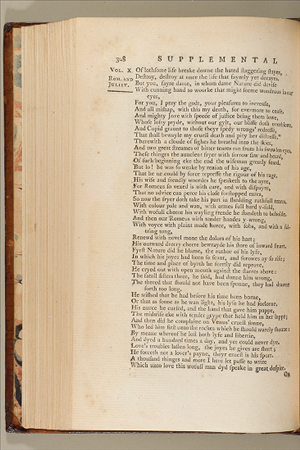 308 SUPPLEMENTAL
VOL. X. Of lothsome life breake downe the hated staggering stayes,
ROM. AND Destroy, destroy at once the life that faintly yet decayes.
JULIET. But you, fayre dame, in whom dame Nature did devise
With cunning hand to woorke that might seeme wondrous in our
eyes,
For you, I pray the gods, your pleasures to increase,
And all mishap, with this my death, for evermore to cease.
And mighty Jove with speede of justice bring them lowe,
Whose lofty pryde, without our gylt, our blisse doth overblow.
And Cupid graunt to those theyr spedy wrongs' redresse,
That shall bewayle my cruell death and pity her distresse.
Therewith a cloude of sighes he breathd into the skies,
And two great streames of bitter teares ran from his swowlen eyes.
These thinges the auncient fryer with sorrow saw and heard,
Of such beginning eke the end the wiseman greatly feard.
But lo! he was so weake by reason of his age,
That he ne could by force represse the rigour of his rage.
His wise and friendly woordes he speaketh to the ayre,
For Romeus so vexed is with care, and with dispayre,
That no advice can perce his close forstopped eares,
So now the fryer doth take his part in shedding ruthfull teares.
With colour pale and wan, with armes full hard y-fold,
With wofull cheere his wayling frende he standeth to behold.
And then our Romeus with tender handes y-wrong,
With voyce with plaint made horce, with sobs, and with a
tong,
Renewd with novel mone the dolors of his hart;
His outward dreery cheere bewrayde his store of inward smart.
Fyrst Nature did he blame, the author of his lyfe,
In which his joyes had been so scant, and sorowes ay so ryfe;
The time and place of byrth he fiersly did reprove,
He cryed out with open mouth against the starres above:
The fatall sisters three, he said, had donne him wrong,
The threed that should not have been sponne, they had drawne
forth too long.
He wished that he had before his time been borne,
Or that as soone as he wan light, his lyfe he had forlorne.
His nurce he cursed, and the hand that gave him pappe,
The midwife eke with tender grype that held him in her lappe;
And then did he complaine on Venus' cruell sonne,
Who led him first unto the rockes which he should warely shonne:
By meane wherof he lost both lyfe and libertie,
And dyed a hundred times a day, and yet could never dye.
Love's troubles lasten long, the joyes he gives are short;
He forceth not a lover's payne, theyr ernest is his sport.
A thousand thinges and more I here let passe to write
Which unto love this wofull man dyd speake in great despite.
On